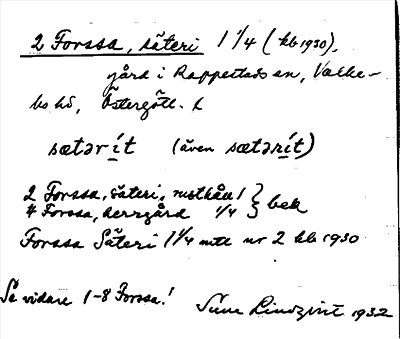 2 Forssa, säteri 1 1/4 (kb 1930),
gård i Rappestads sn, Valke-
bo hd, Östergötl. l
sætərít (även sætərít)
2 Forssa, säteri, rusthåll 1 } bek
4 Forssa, herrgård 1/4
Forssa Säteri 1 1/4 mtl nr 2 kb 1930
Se vidare 1-8 Forssa! Sune Lindqvist 1932